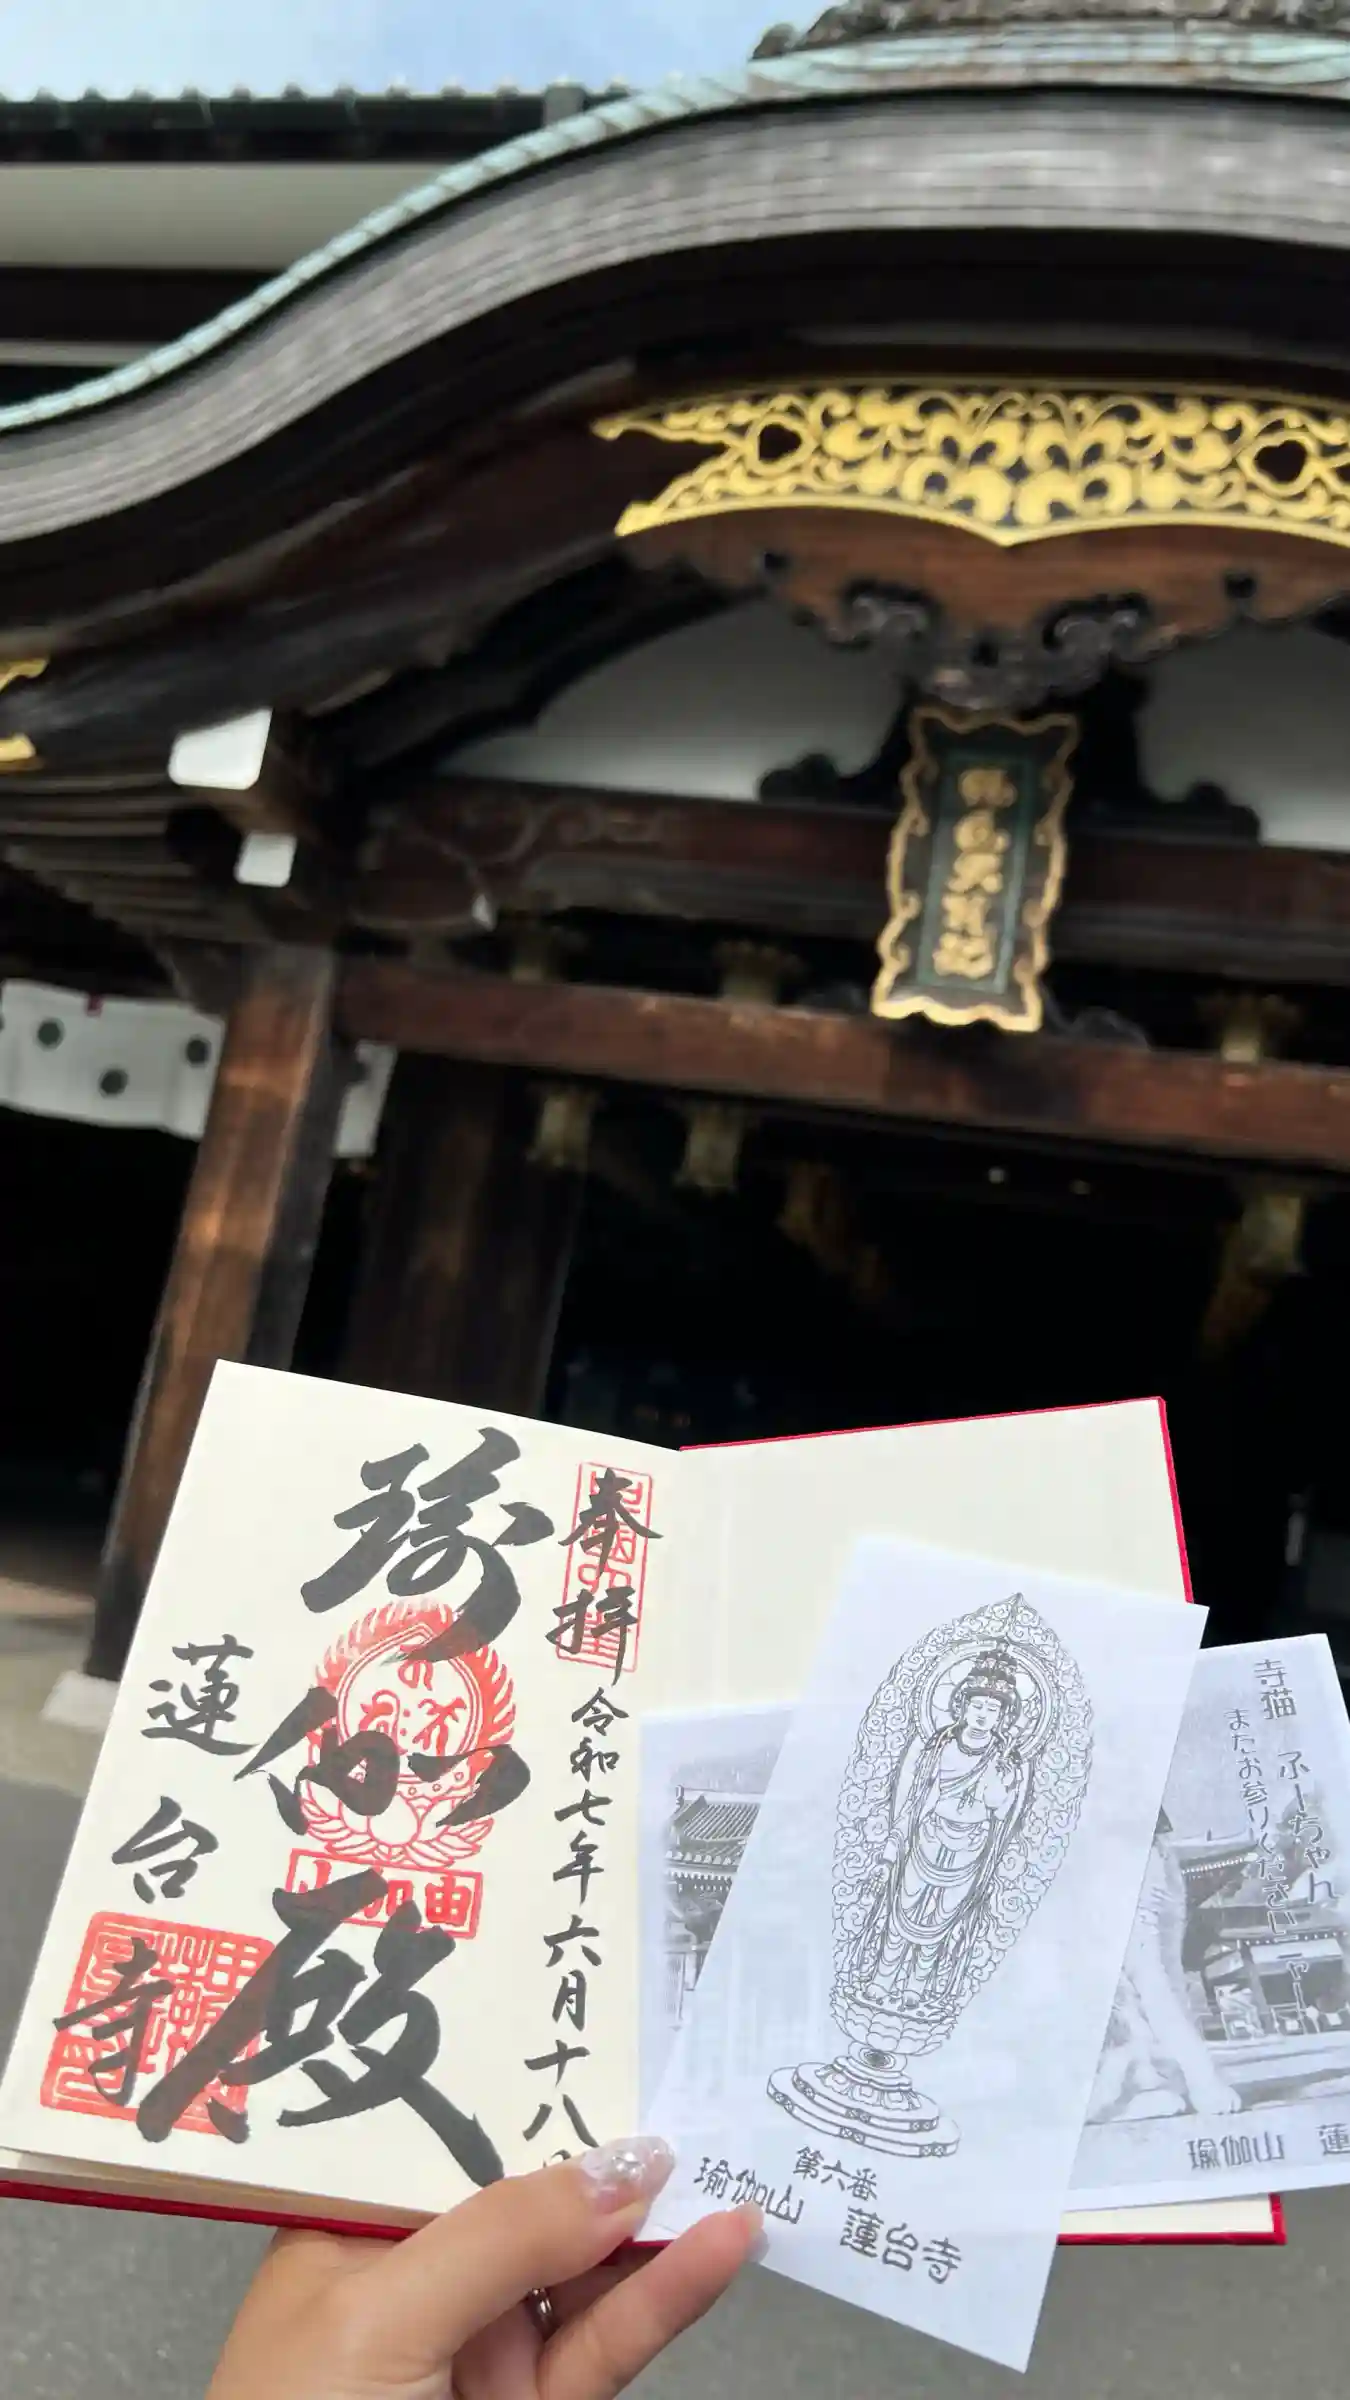 奉拝
令和七年六月十八日
瑜伽殿
蓮台寺
第六番
瑜伽山 蓮台寺
寺猫 ふーちゃん
またお参りください ニャー
瑜伽山 蓮